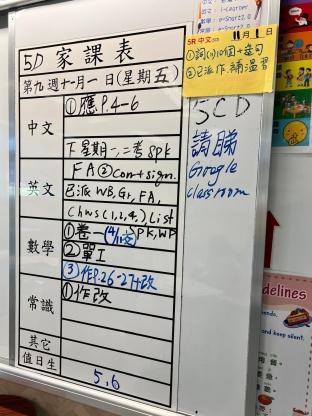 5D 家課表
第九週十一月一日(星期五)
中文
①應P.4-6
下星期一,二考8pk
英文
FA②Con+sign.
已派WB, Gr, FA,
Chws(1,2,4,)List
數學
①卷一(4/11交)PK, WP
②單I
③作P.26-27+改
常識
①作改
其它
值日生
5,6
5R 中文
11月1日
①詞(11)10個+造句
②已派作,補,溫習
5CD
請睇
Google
classroom
i-Learner
delines
and keep silent.